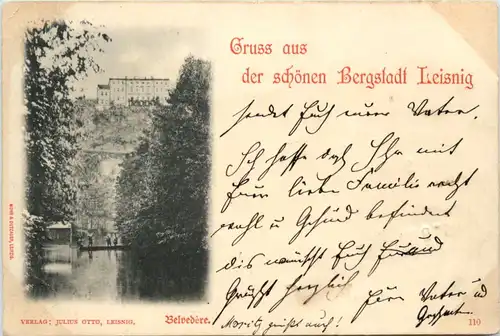 Gruss aus
der schönen Bergstadt Leisnig
sendet Euch Euer Vater.
Ich hoffe daß Ihr mit
Eur liebe Familie recht
wohl u Gesund befindet
dis wünscht Euch
Grüßt herzlich Eur Vater u
Moritz grüßt auch! Großvater
VERLAG: JULIUS OTTO, LEISNIG.
Belvedère.
110